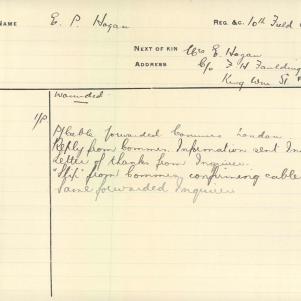 NAME E. P. Hogan REG. &C. 10th Field
NEXT OF KIN Mrs E. Hogan
ADDRESS C/o F H Faulding
King Wm St
Wounded
Cable forwarded Commrs London
Reply from Commrs. Information sent In
Letter of thanks from Inquirer
from Commrs, confirming cable
Same forwarded Inquirer